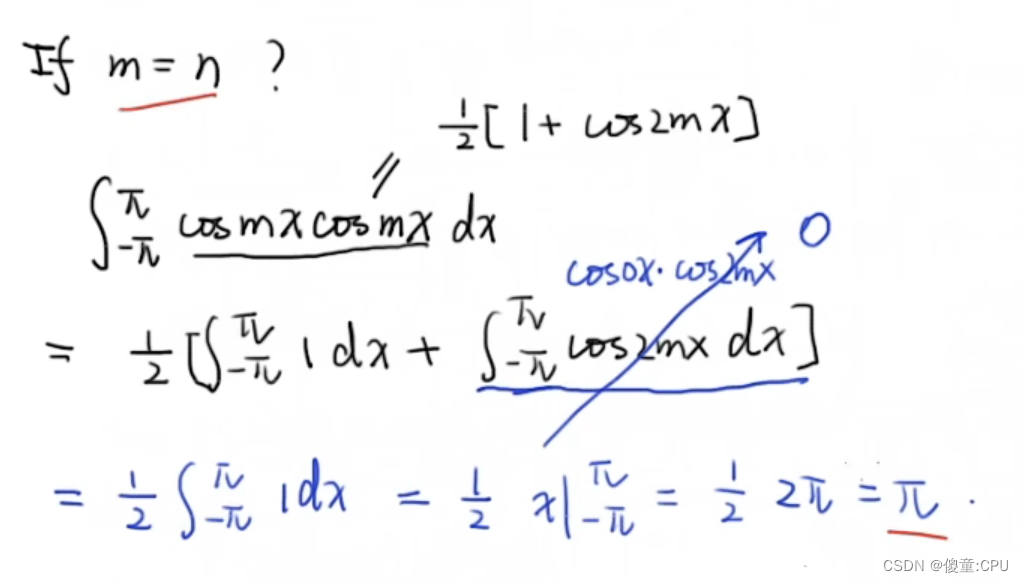 If m = n ?
1/2 [ 1 + cos2mx ]
∫_{-π}^{π} cosmxcosmx dx
cos0x · cos2mx 0
= 1/2 [ ∫_{-π}^{π} 1 dx + ∫_{-π}^{π} cos2mx dx ]
= 1/2 ∫_{-π}^{π} 1dx = 1/2 x|_{-π}^{π} = 1/2 2π = π .
CSDN @傻童:CPU